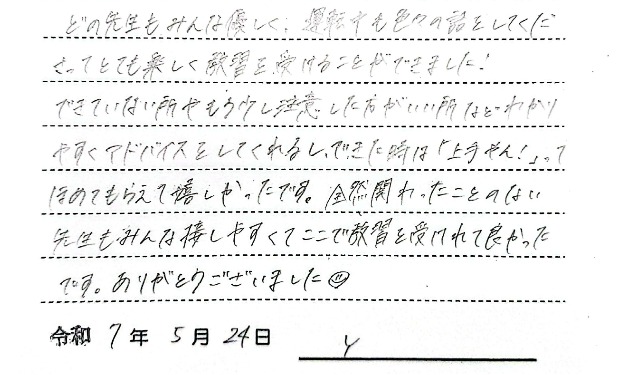 どの先生もみんな優しく、運転中も色々の話をしてくだ
さってとても楽しく教習を受けることができました!
できていない所やもう少し注意した方がいい所などわかり
やすくアドバイスをしてくれるし、できた時は「上手やん!」って
ほめてもらえて嬉しかったです。全然関わったことのない
先生もみんな接しやすくてここで教習を受けれて良かった
です。ありがとうございました
令和 7年 5月 24日 Y